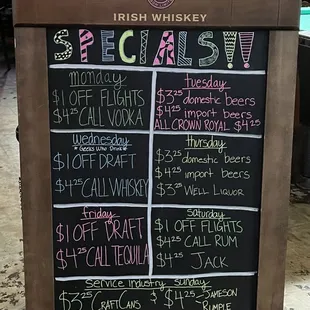 IRISH WHISKEY
SPECIALS!!
Monday
$1 OFF FLIGHTS
$4.25 CALL VODKA
Tuesday
$3.25 domestic beers
$4.25 import beers
ALL CROWN ROYAL $4.25
Wednesday
*GEEKS WHO DRINK*
$1 OFF DRAFT
$4.25 CALL WHISKEY
Thursday
$3.25 domestic beers
$4.25 import beers
$3.25 WELL LIQUOR
Friday
$1 OFF DRAFT
$4.25 CALL TEQUILA
Saturday
$1 OFF FLIGHTS
$4.25 CALL RUM
$4.25 JACK
Service industry Sunday
$3.25 CRAFT CANS & $4.25 JAMESON
RUMPLE